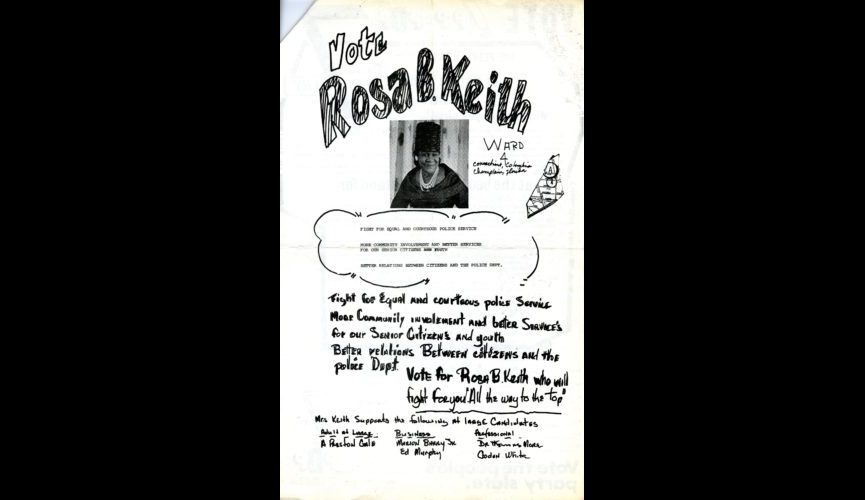 Vote
Rosa B. Keith
WARD
4
FIGHT FOR EQUAL AND COURTEOUS POLICE SERVICE
MORE COMMUNITY INVOLVEMENT AND BETTER SERVICES
FOR OUR SENIOR CITIZENS AND YOUTH
BETTER RELATIONS BETWEEN CITIZENS AND THE POLICE DEPT.
Fight for Equal and courteous police Service
More Community involement and beter Service's
for our Senior Citizens and youth
Better relations Between citizens and the
police Dept.
Vote for Rosa B. Keith who will
fight for you "All the way to the top"
Mrs Keith Supports the following at large Candidates
Adult at Large Business Professional
A Preston Gale Marion Barry Jr.
Ed Murphy White